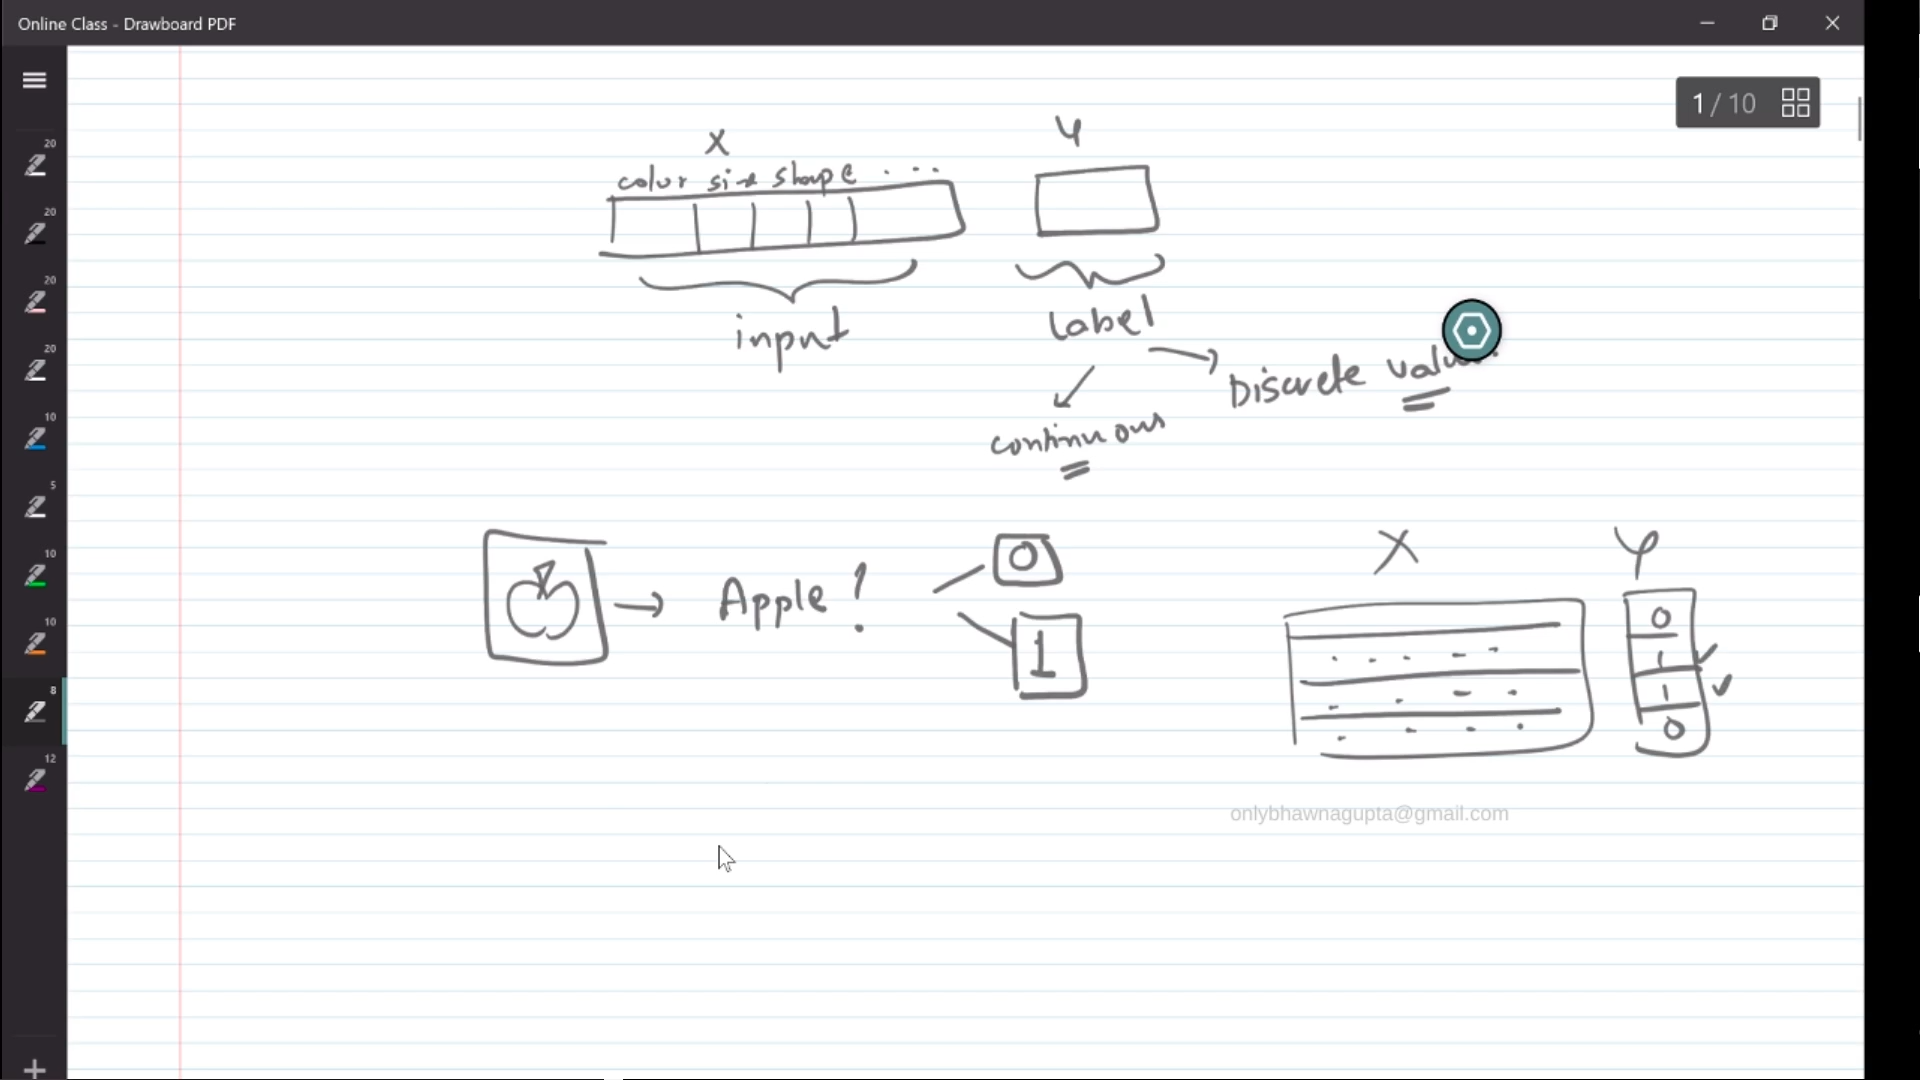 Online Class - Drawboard PDF
1 / 10
20
20
20
20
10
5
10
10
8
12
X
Y
color size shape . . .
input
label
Discrete
continuous
Apple ?
0
1
X
Y
0
1
1
0
onlybhawnagupta@gmail.com